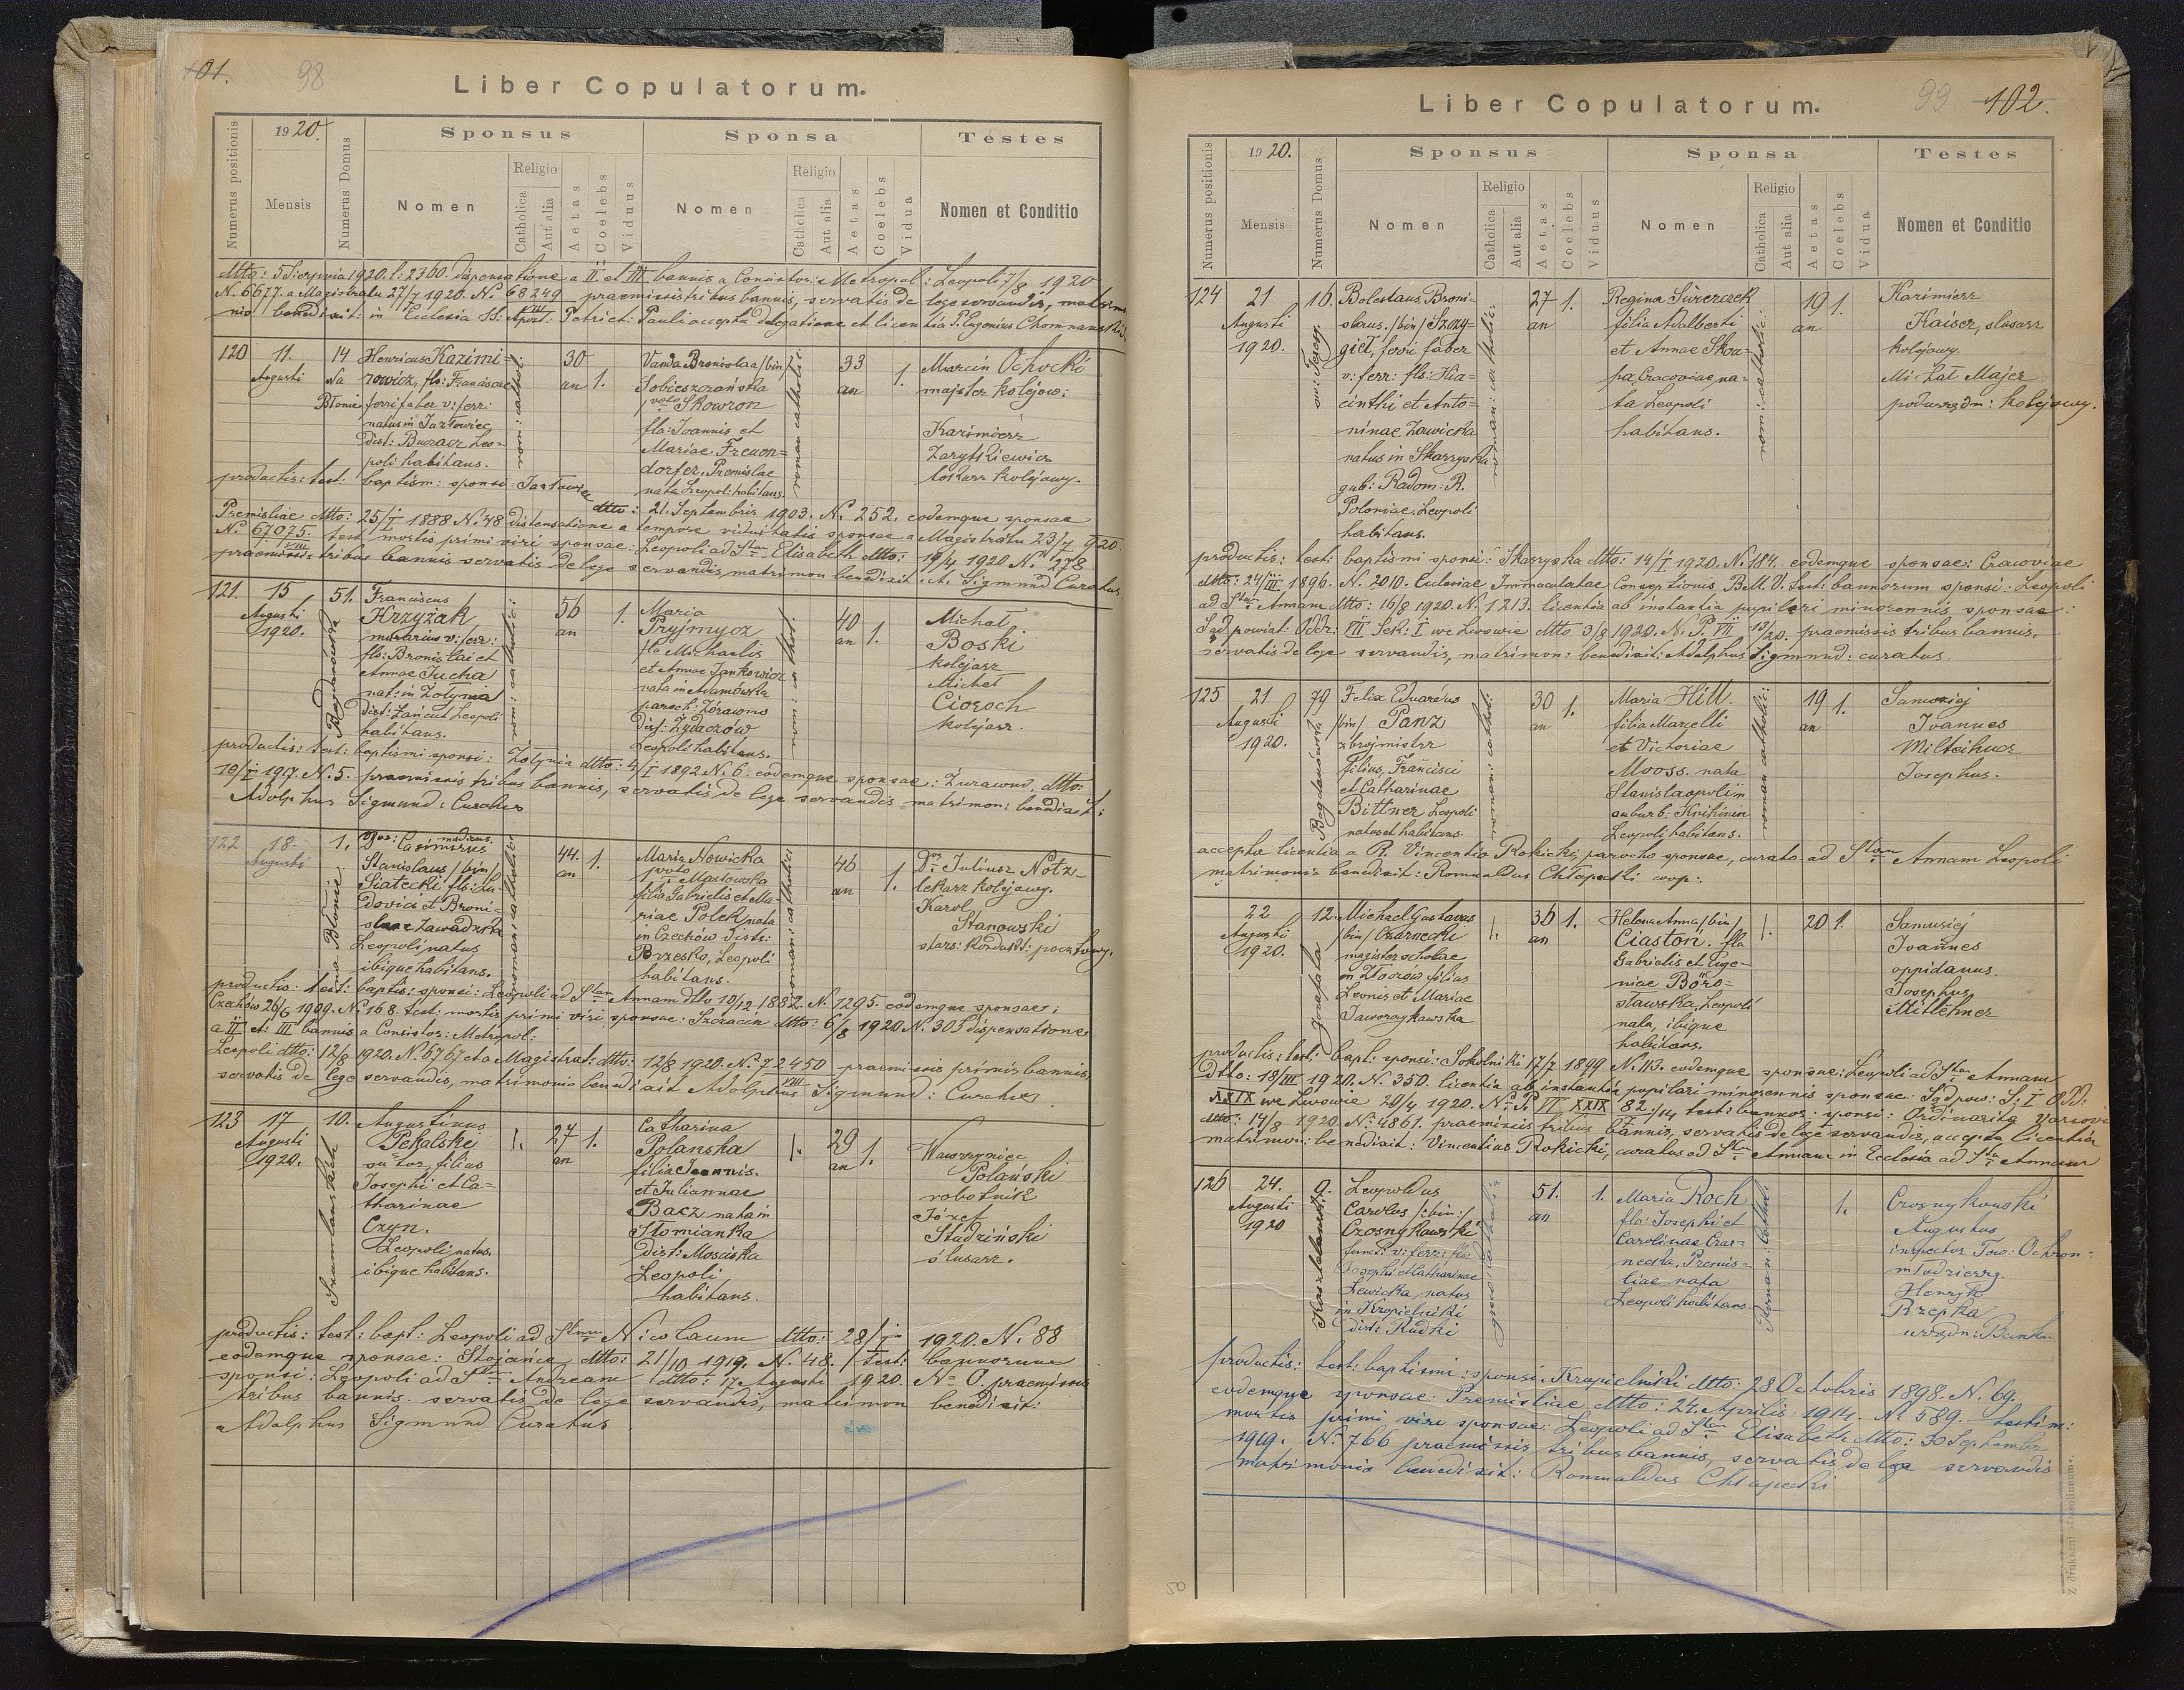 101. 98
Liber Copulatorum.
Numerus positionis
1920.
Mensis
Numerus Domus
Sponsus
Nomen
Religio
Catholica
Aut alia
Aetas
Coelebs
Viduus
Sponsa
Nomen
Religio
Catholica
Aut alia
Aetas
Coelebs
Vidua
Testes
Nomen et Conditio
dtto: 5 Sierpnia 1920. l: 2360. dispensatione a II et III bannis a Consistor: Metropol: Leopoli 7/8 1920
N. 6677. a Magistratu 27/7 1920. N. 68249 praemissis tribus bannis, servatis de lege servandis, matrimo
nio benedixit: in Ecclesia SS: Apost: Petri et Pauli accepta delegatione et licentia P. Eugenius
120
11.
Augusti
14
Na
Błonie
Henricus Kazimi=
rowicz, fls: Franciscae
ferri faber v: ferr:
natus in Jazłowiec
dist: Buczacz Leo=
poli habitans.
rom: cathol:
30
an
1.
Vanda Bronislaa /bin/
Sobieszczańska
1 voto Skowron
fla: Joannis et
Mariae Freuon=
dorfer. Premislae
nata Leopoli habitans.
roman: catholi:
33
an
1.
Marcin Ochocki
majster kolejow:
Kazimierz
Zarytkiewicz
tokarz kolejowy.
productis: test: baptism: sponsi: Jazłowiec
dtto: 21. Septembris 1903. N. 252. eodemque sponsae
Premisliae dtto: 25/I 1888 N. 48 dispensatione a tempore viduitatis sponsae a Magistratu 23/7 1920.
N. 67075. test: mortis primi viri sponsae: Leopoli ad Stam Elisabeth dtto: 19/4 1920 N. 278
praemissis tribus bannis servatis de lege servandis, matrimon benedixit: A. Sigmund Curatus
121.
15
Augusti
1920.
51.
Bogdanówska
Franciscus
Krzyżak
murarius v: ferr:
fls: Bronislai et
Annae Jucha
nat: in Żołynia
dist: Łańcut Leopoli
habitans.
rom: catholic:
56
an
1.
Maria
Pryjmycz
fla Michaelis
et Annae Jankowicz
nata in Adamówka
paroch: Żórawno
dist: Żydaczów
Leopoli habitans.
rom: cathol:
40
an
1.
Michał
Boski
kolejarz
Michał
Cioroch
kolejarz.
productis: test: baptismi sponsi: Żołynia dtto: 4/I 1892 N. 6. eodemque sponsae: Żurawno, dtto:
19/I 1917. N. 5. praemissis tribus bannis, servatis de lege servandis matrimon: benedixit:
Adolphus Sigmund: Curatus
122
18.
Augusti
1.
na Błonie
Dor: medicus
Casimirus
Stanislaus /bin/
Siatecki fls: Lu=
dovici et Broni=
slaae Zawadzka
Leopoli natus
ibique habitans.
roman: catholici:
44.
an
1.
Maria Nowicka
1 voto Masłowska
filia Gabrielis et Ma=
riae Polek nata
in Czechów distr:
Brzesko, Leopoli
habitans.
roman: catholici
46
an
1.
Dr. Juliusz Notz
lekarz kolejowy.
Karol
Stanowski
stars: kondukt: pocztowy.
productis: test: baptis: sponsi: Leopoli ad Stam Annam dtto 10/12 1882. N. 1295. eodemque sponsae:
Czchów 26/6 1909. N. 168. test: mortis primi viri sponsae: Szczacin dtto: 6/8 1920 N. 303 dispensatione
a II et III bannis a Consistor: Metropol:
Leopoli dtto: 12/8 1920. N. 6767 et a Magistrat: dtto: 12/8 1920. No 72450 praemissis primis bannis,
servatis de lege servandis, matrimonio benedixit Adolphus Sigmund: Curatus
123
17
Augusti
1920.
10.
Szumlańskich
Augustinus
Pekalski
sutor, filius
Josephi et Ca=
tharinae
Czyn.
Leopoli natus.
ibique habitans.
1.
27
an
1.
Catharina
Polanska
filia Joannis.
et Juliannae
Bacz nata in
Słomianka
dist: Mościska
Leopoli
habitans.
1.
29
an
1.
Wawrzyniec
Polański
robotnik
Józef
Studziński
ślusarz.
productis: test: bapt: Leopoli ad Stum Nicolaum dtto: 28/ 1920. N. 88
eodemque sponsae: Stojańce, dtto: 21/10 1919. N. 48. / test: bannorum
sponsi: Leopoli ad Stum Andream dtto: 17 Augusti 1920. No 0. praemissis
tribus bannis. servatis de lege servandis, matrimon benedixit:
Adolphus Sigmund Curatus
99 102.
Liber Copulatorum.
Numerus positionis
1920.
Mensis
Numerus Domus
Sponsus
Nomen
Religio
Catholica
Aut alia
Aetas
Coelebs
Viduus
Sponsa
Nomen
Religio
Catholica
Aut alia
Aetas
Coelebs
Vidua
Testes
Nomen et Conditio
124
21
Augusti
1920.
16.
św: Teresy.
Boleslaus Broni=
slaus. /bin/ Szozy=
gieł, ferri faber
v: ferr: fls: Hia=
cinthi et Anto=
ninae Zawicka
natus in Skarzysko
gub: Radom: R.
Poloniae, Leopoli
habitans.
roman: catholic:
27
an
1.
Regina Świerczek
filia Adalberti
et Annae Skow=
pa, Cracoviae na=
ta Leopoli
habitans.
rom: catholic:
19
an
1.
Kazimierz
Kaiser, slusarz
kolejowy.
Michał Majer
podurzędn: kolejowy.
productis: test: baptismi sponsi: Skarzysko dtto: 14/I 1920. N. 184. eodemque sponsae: Cracoviae
dtto: 24/III 1896. N. 2010. Ecclesiae Immaculatae Conseptionis B.M.V. test: bannorum sponsi: Leopoli
ad Stam Annam dtto: 16/8 1920. N. 1213. licentia ab instantia pupilari minorennis sponsae:
Sąd powiat: Odz: VII Sek: I we Lwowie dtto 3/8 1920. N. P. VII 13/20. praemissis tribus bannis,
servatis de lege servandis, matrimon: benedixit: Adolphus Sigmund: curatus.
125
21
Augusti
1920.
79
Bogdanówska
Felix Eduardus
/bin/ Panz
zbrojmistrz
filius, Francisci
et Catharinae
Bittner Leopoli
natus et habitans.
roman: catholi:
30
an
1.
Maria Hill.
filia Marcelli
et Victoriae
Mooss. nata
Stanislaopoli in
suburb: Knihinin
Leopoli habitans.
roman catholic:
19
an
1.
Samusiej
Joannes
Josephus.
accepta licentia a R. Vincentio Rokicki, parocho sponsae, curato ad Stam Annam Leopoli
matrimonio benedixit: Romualdus Chłapecki coop:
22
Augusti
1920.
12.
Jozafata
Michael Gustavus
/bin/ Czarnecki
magister scholae
in Złoczów filius
Leonis et Mariae
Jaworzykowska
1.
36
an
1.
Helena Anna /bin/
Ciastoń. fla
Gabrielis et Euge=
niae Boro=
stawska, Leopoli
nata, ibique
habitans.
1.
20
1.
Samusiej
Joannes
oppidanus.
Josephus
Mittehner
productis: test: bapt: sponsi: Sokolniki 17/7 1899. N. 113. eodemque sponsae: Leopoli ad Stam Annam
Dtto: 18/III 1920. N. 350. licentia ab instantia pupilari minorennis sponsae: Sąd pow: S: I Odd:
XXIX we Lwowie 20/4 1920. No. P. VI XXIX 82/14 test: bannor: sponsi: Ordinarita Varsovi
dtto: 17/8 1920. No 4861. praemissis tribus bannis, servatis de lege servandis, accepta licentia
matrimon: benedixit: Vincentius Rokicki, curatus ad Stam Annam in Ecclesia ad Sta Annam
126
24.
Augusti
1920
9.
Kasztelańska
Leopoldus
Carolus /:bin:/
Czosnykowski
func: v: ferr: fls:
Josephi et Catharinae
Lewicka natus
in Kropielniki
dist: Rudki
graeco catholic
51.
an
1.
Maria Roch
fla: Josephi et
Carolinae Czar=
necka, Premis=
liae nata
Leopoli habitans.
Roman: Cathol:
1.
Czosnykowski
Augustus
inspector Tow: Ochron=
młodzierzy.
Henryk
Rzepka
urzędn: Banku
productis: test: baptismi: sponsi: Kropielniki dtto: 28 Octobris 1898. N. 69.
eodemque sponsae: Premisliae dtto: 24. Aprilis 1914. No 589. testim:
mortis primi viri sponsae: Leopoli ad Stam Elisabeth dtto: 30 Septembr
1919. No. 766 praemissis tribus bannis, servatis de lege servandis
matrimonio benedixit: Romualdus Chłapecki
Z drukarni Ossolineum.
20